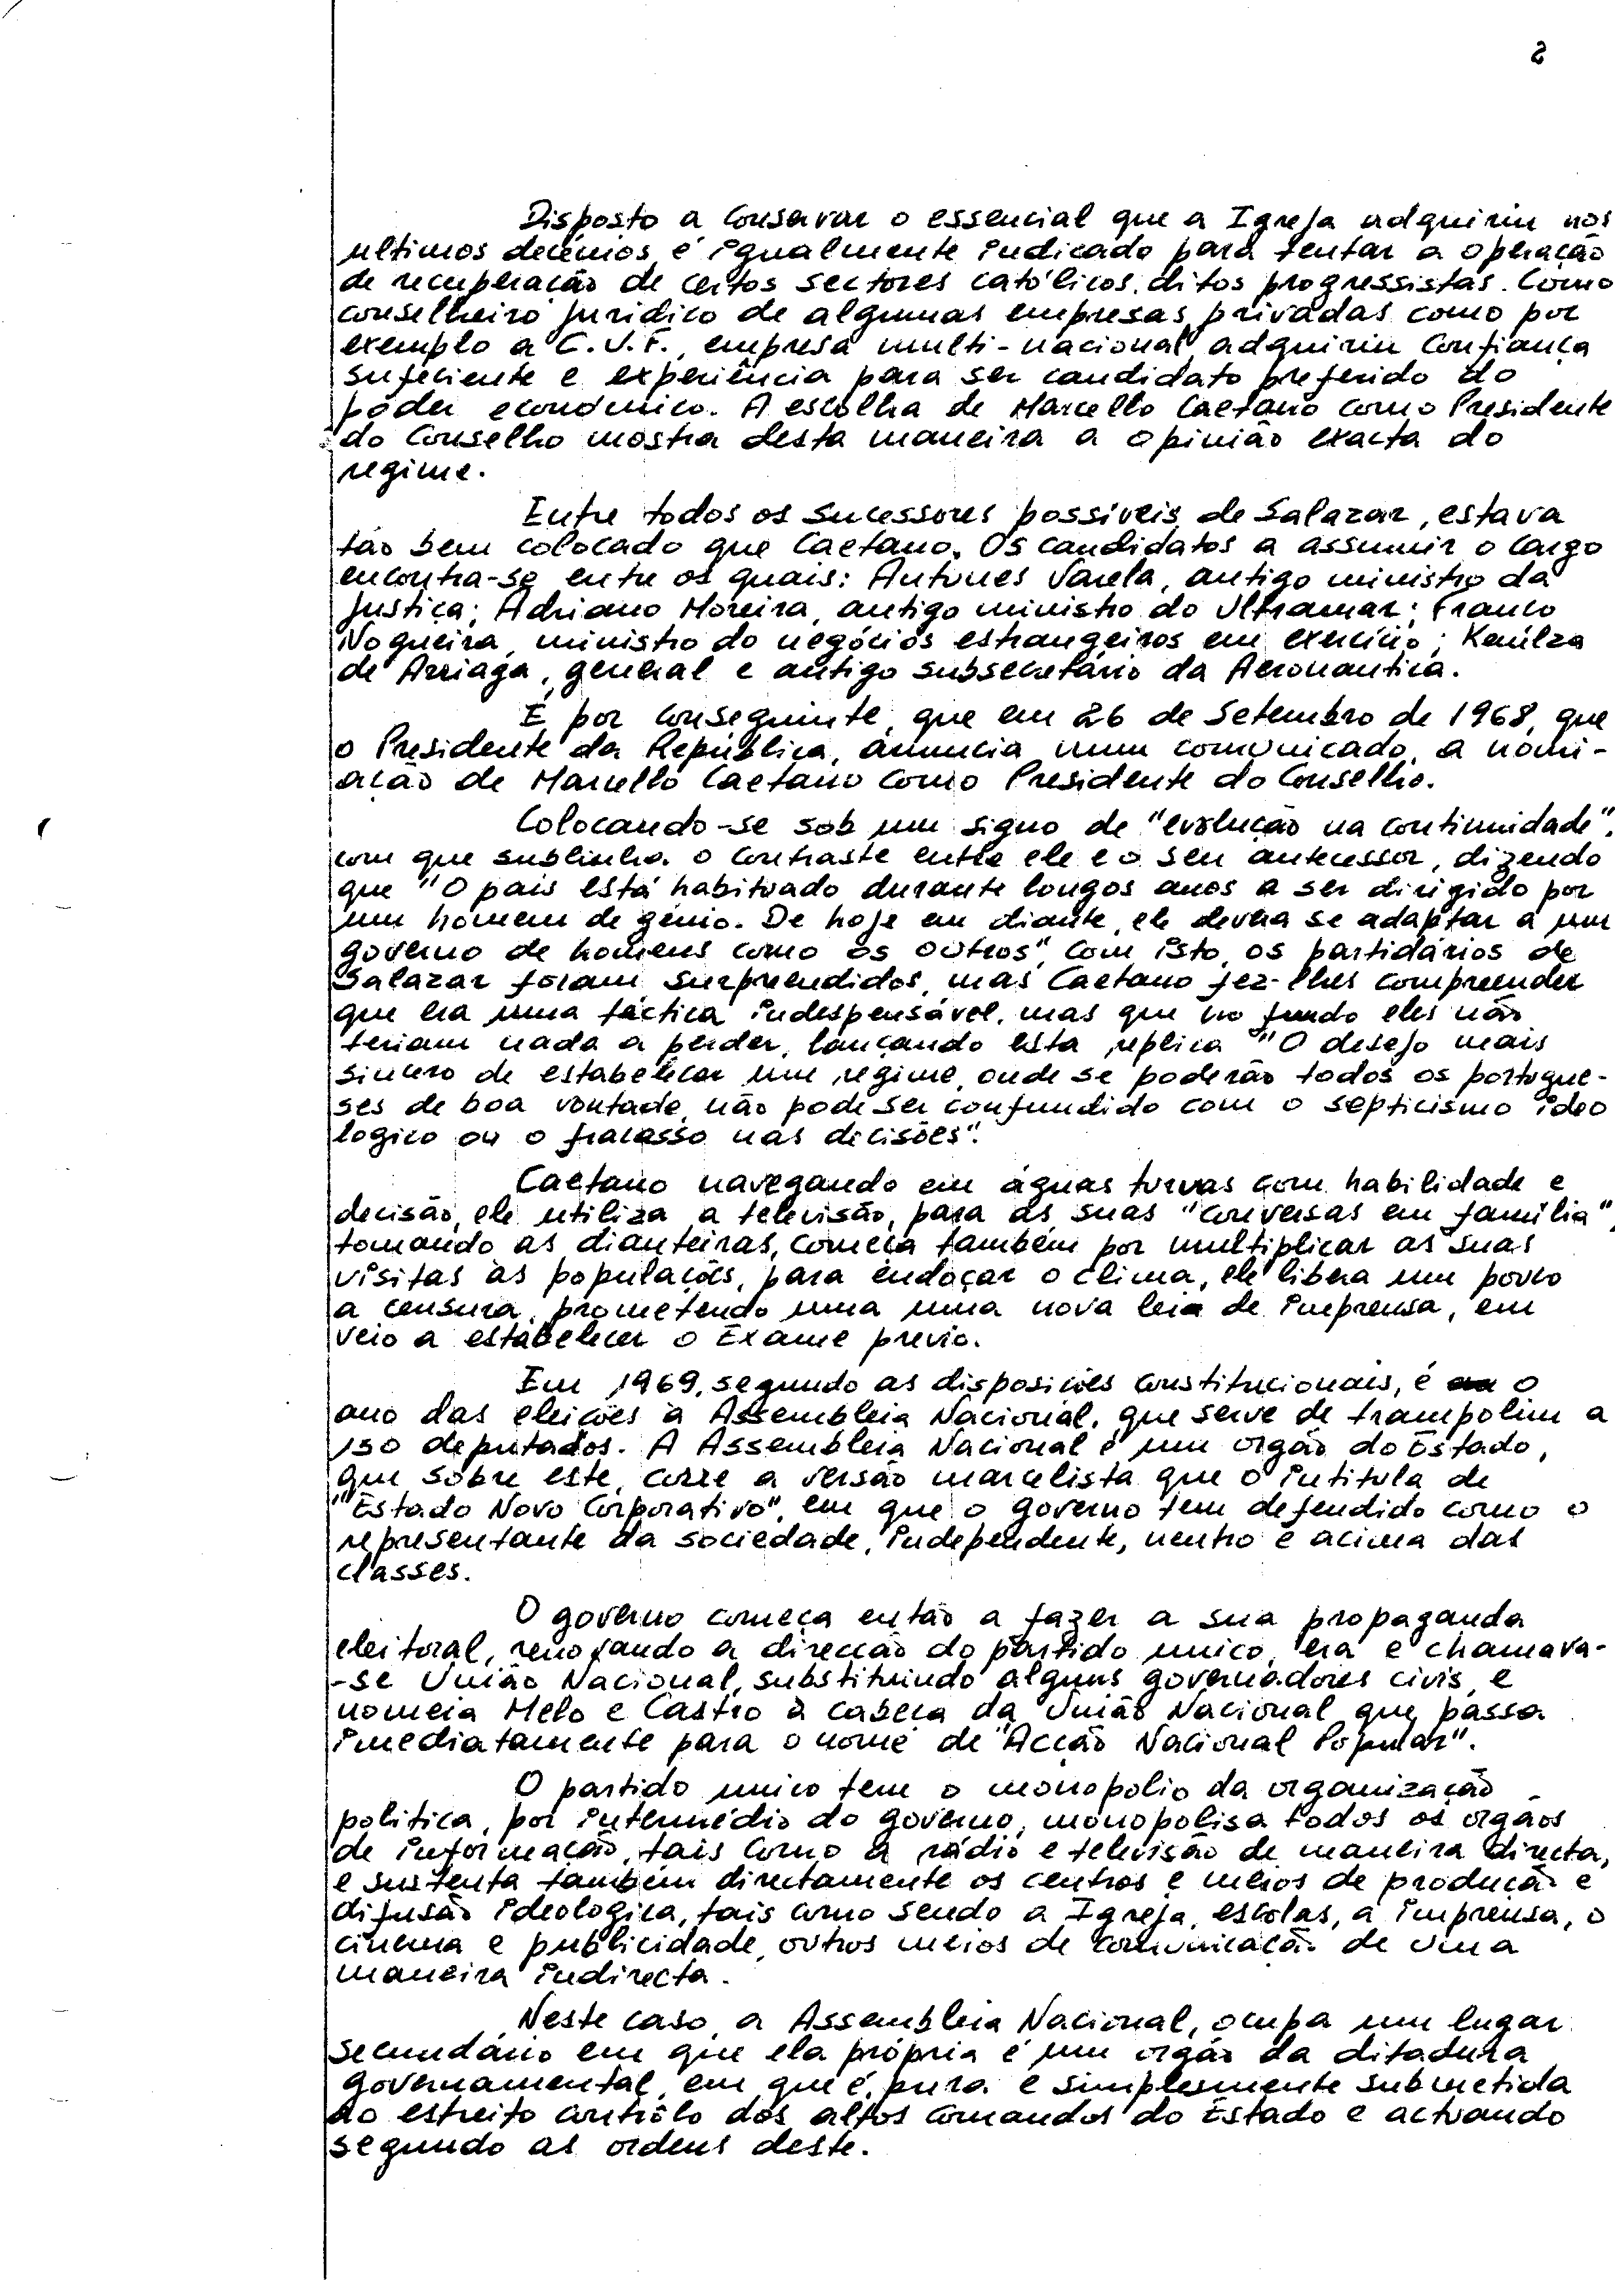 2
Disposto a conservar o essencial que a Igreja adquiriu nos
ultimos decénios, é igualmente indicado para tentar a operação
de recuperação de certos sectores católicos, ditos progressistas. Como
conselheiro juridico de algumas empresas privadas como por
exemplo a C.U.F., empresa multi-nacional, adquiriu confiança
suficiente e experiência para ser candidato preferido do
poder económico. A escolha de Marcello Caetano como Presidente
do Conselho mostra desta maneira a opinião exacta do
regime.
Entre todos os sucessores possiveis de Salazar, estava
tão bem colocado que Caetano. Os candidatos a assumir o cargo
encontra-se entre os quais: Antunes Varela, antigo ministro da
Justiça; Adriano Moreira, antigo ministro do Ultramar; Franco
Nogueira, ministro do negócios estrangeiros em exercício; Kaúlza
de Arriaga, general e antigo subsecretário da Aeronautica.
É por conseguinte, que em 26 de Setembro de 1968, que
o Presidente da República, anuncia num comunicado, a nomi-
ação de Marcello Caetano como Presidente do Conselho.
Colocando-se sob um signo de "evolução na continuidade",
com que sublinha o contraste entre ele e o seu antecessor, dizendo
que "O pais está habituado durante longos anos a ser dirigido por
um homem de génio. De hoje em diante, ele deverá se adaptar a um
governo de homens como os outros". Com isto, os partidários de
Salazar foram surpreendidos, mas Caetano fez-lhes compreender
que era uma táctica indespensável, mas que no fundo eles não
teriam nada a perder, lançando esta replica "O desejo mais
sincero de estabelecer um regime, onde se poderão todos os portugue-
ses de boa vontade, não pode ser confundido com o septicismo ideo
logico ou o fracasso nas decisões".
Caetano navegando em águas turvas com habilidade e
decisão, ele utiliza a televisão, para as suas "conversas em família",
tomando as dianteiras, começa também por multiplicar as suas
visitas às populações, para endoçar o clima, ele libera um pouco
a censura, prometendo uma uma nova leia de Imprensa, em
veio a estabelecer o Exame previo.
Em 1969, segundo as disposições constitucionais, é o
ano das eleições à Assembleia Nacional, que serve de trampolim a
150 deputados. A Assembleia Nacional é um orgão do Estado,
que sobre este, corre a versão marcelista que o intitula de
"Estado Novo Corporativo", em que o governo tem defendido como o
representante da sociedade, independente, neutro e acima das
classes.
O governo começa então a fazer a sua propaganda
eleitoral, renovando a direcção do partido unico, era e chamava-
-se União Nacional, substituindo alguns governadores civis, e
nomeia Melo e Castro à cabeça da União Nacional que passa
imediatamente para o nome de "Acção Nacional Popular".
O partido unico tem o monopolio da organização
politica, por intermédio do governo, monopolisa todos os orgãos
de informação, tais como a rádio e televisão de maneira directa,
e sustenta também directamente os centros e meios de produção e
difusão ideologica, tais como sendo a Igreja, escolas, a imprensa, o
cinema e publicidade, outros meios de comunicação de uma
maneira indirecta.
Neste caso, a Assembleia Nacional, ocupa um lugar
secundário em que ela própria é um orgão da ditadura
governamental, em que é pura e simplesmente submetida
ao estreito contrôlo dos altos comandos do Estado e actuando
segundo as ordens deste.